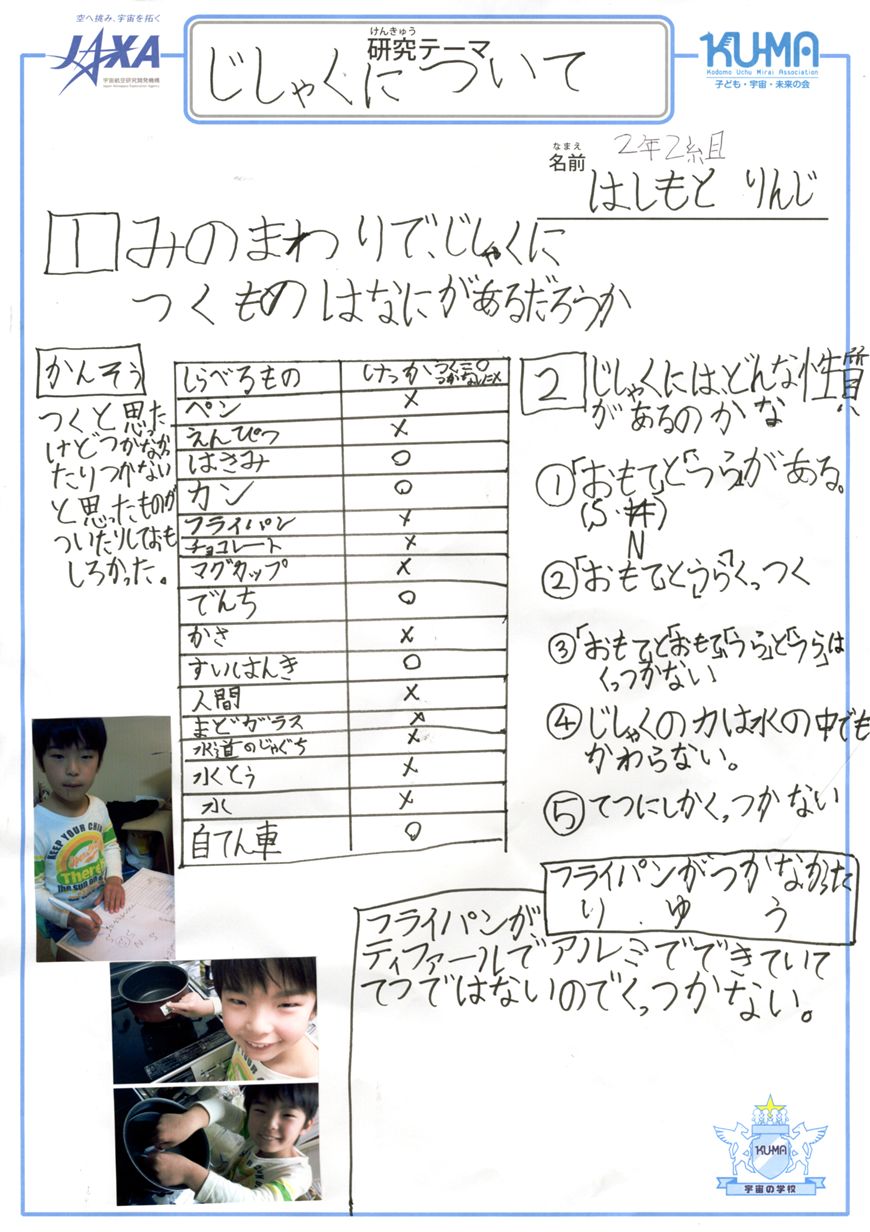 空へ挑み、宇宙を拓く
JAXA
宇宙航空研究開発機構
Japan Aerospace Exploration Agency
けんきゅう
研究テーマ
じしゃくについて
KU-MA
Kodomo Uchu Mirai Association
子ども・宇宙・未来の会
なまえ
名前
2年2組
はしもと りんじ
1 みのまわりで、じしゃくに
つくものはなにがあるだろうか
かんそう
つくと思った
けどつかなかっ
たりつかない
と思ったものが
ついたりしておも
しろかった。
しらべるもの けっか つく=○ つかない=×
ペン ×
えんぴつ ×
はさみ ○
カン ○
フライパン ×
チョコレート ×
マグカップ ×
でんち ○
かさ ×
すいはんき ○
人間 ×
まどガラス ×
水道のじゃぐち ×
水とう ×
水 ×
自てん車 ○
2 じしゃくには、どんな性質
があるのかな
①「おもて」と「うら」がある。
(S・N)
②「おもて」と「うら」くっつく
③「おもて」と「おもて」「うら」と「うら」は
くっつかない
④じしゃくの力は水の中でも
かわらない。
⑤てつにしかくっつかない
フライパンがつかなかった
りゆう
フライパンが
ティファールでアルミでできていて
てつではないのでくっつかない。
KEEP YOUR CHIN
There!!
the sun on a
KU-MA
宇宙の学校